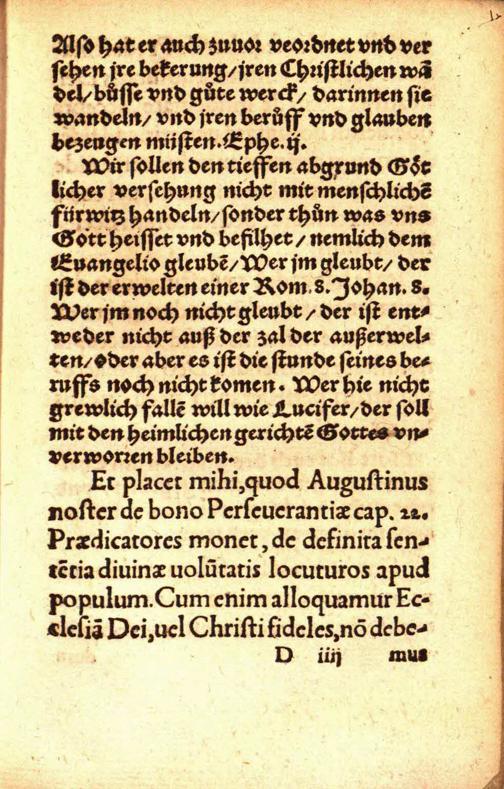 Also hat er auch zuuor veordnet vnd ver
sehen jre bekerung/jren Christlichen wā
del/bůsse vnd gůte werck/ darinnen sie
wandeln/ vnd jren berůff vnd glauben
bezeugen müsten.Ephe.ij.
Wir sollen den tieffen abgrund Göt
licher versehung nicht mit menschlichē
fürwitz handeln/sonder thůn was vns
Gott heisset vnd befilhet/ nemlich dem
Euangelio gleubē/Wer jm gleubt/ der
ist der erwelten einer Rom.8.Johan.8.
Wer jm noch nicht gleubt/ der ist ent-
weder nicht auß der zal der außerwel-
ten/oder aber es ist die stunde seines be-
ruffs noch nicht komen. Wer hie nicht
grewlich fallē will wie Lucifer/der soll
mit den heimlichen gerichtē Gottes vn-
verworren bleiben.
Et placet mihi,quod Augustinus
noster de bono Perseuerantiæ cap. 22.
Prædicatores monet, de definita sen-
tētia diuinæ uolūtatis locuturos apud
populum.Cum enim alloquamur Ec-
clesiā Dei,uel Christi fideles,nō debe-
D iiij mus